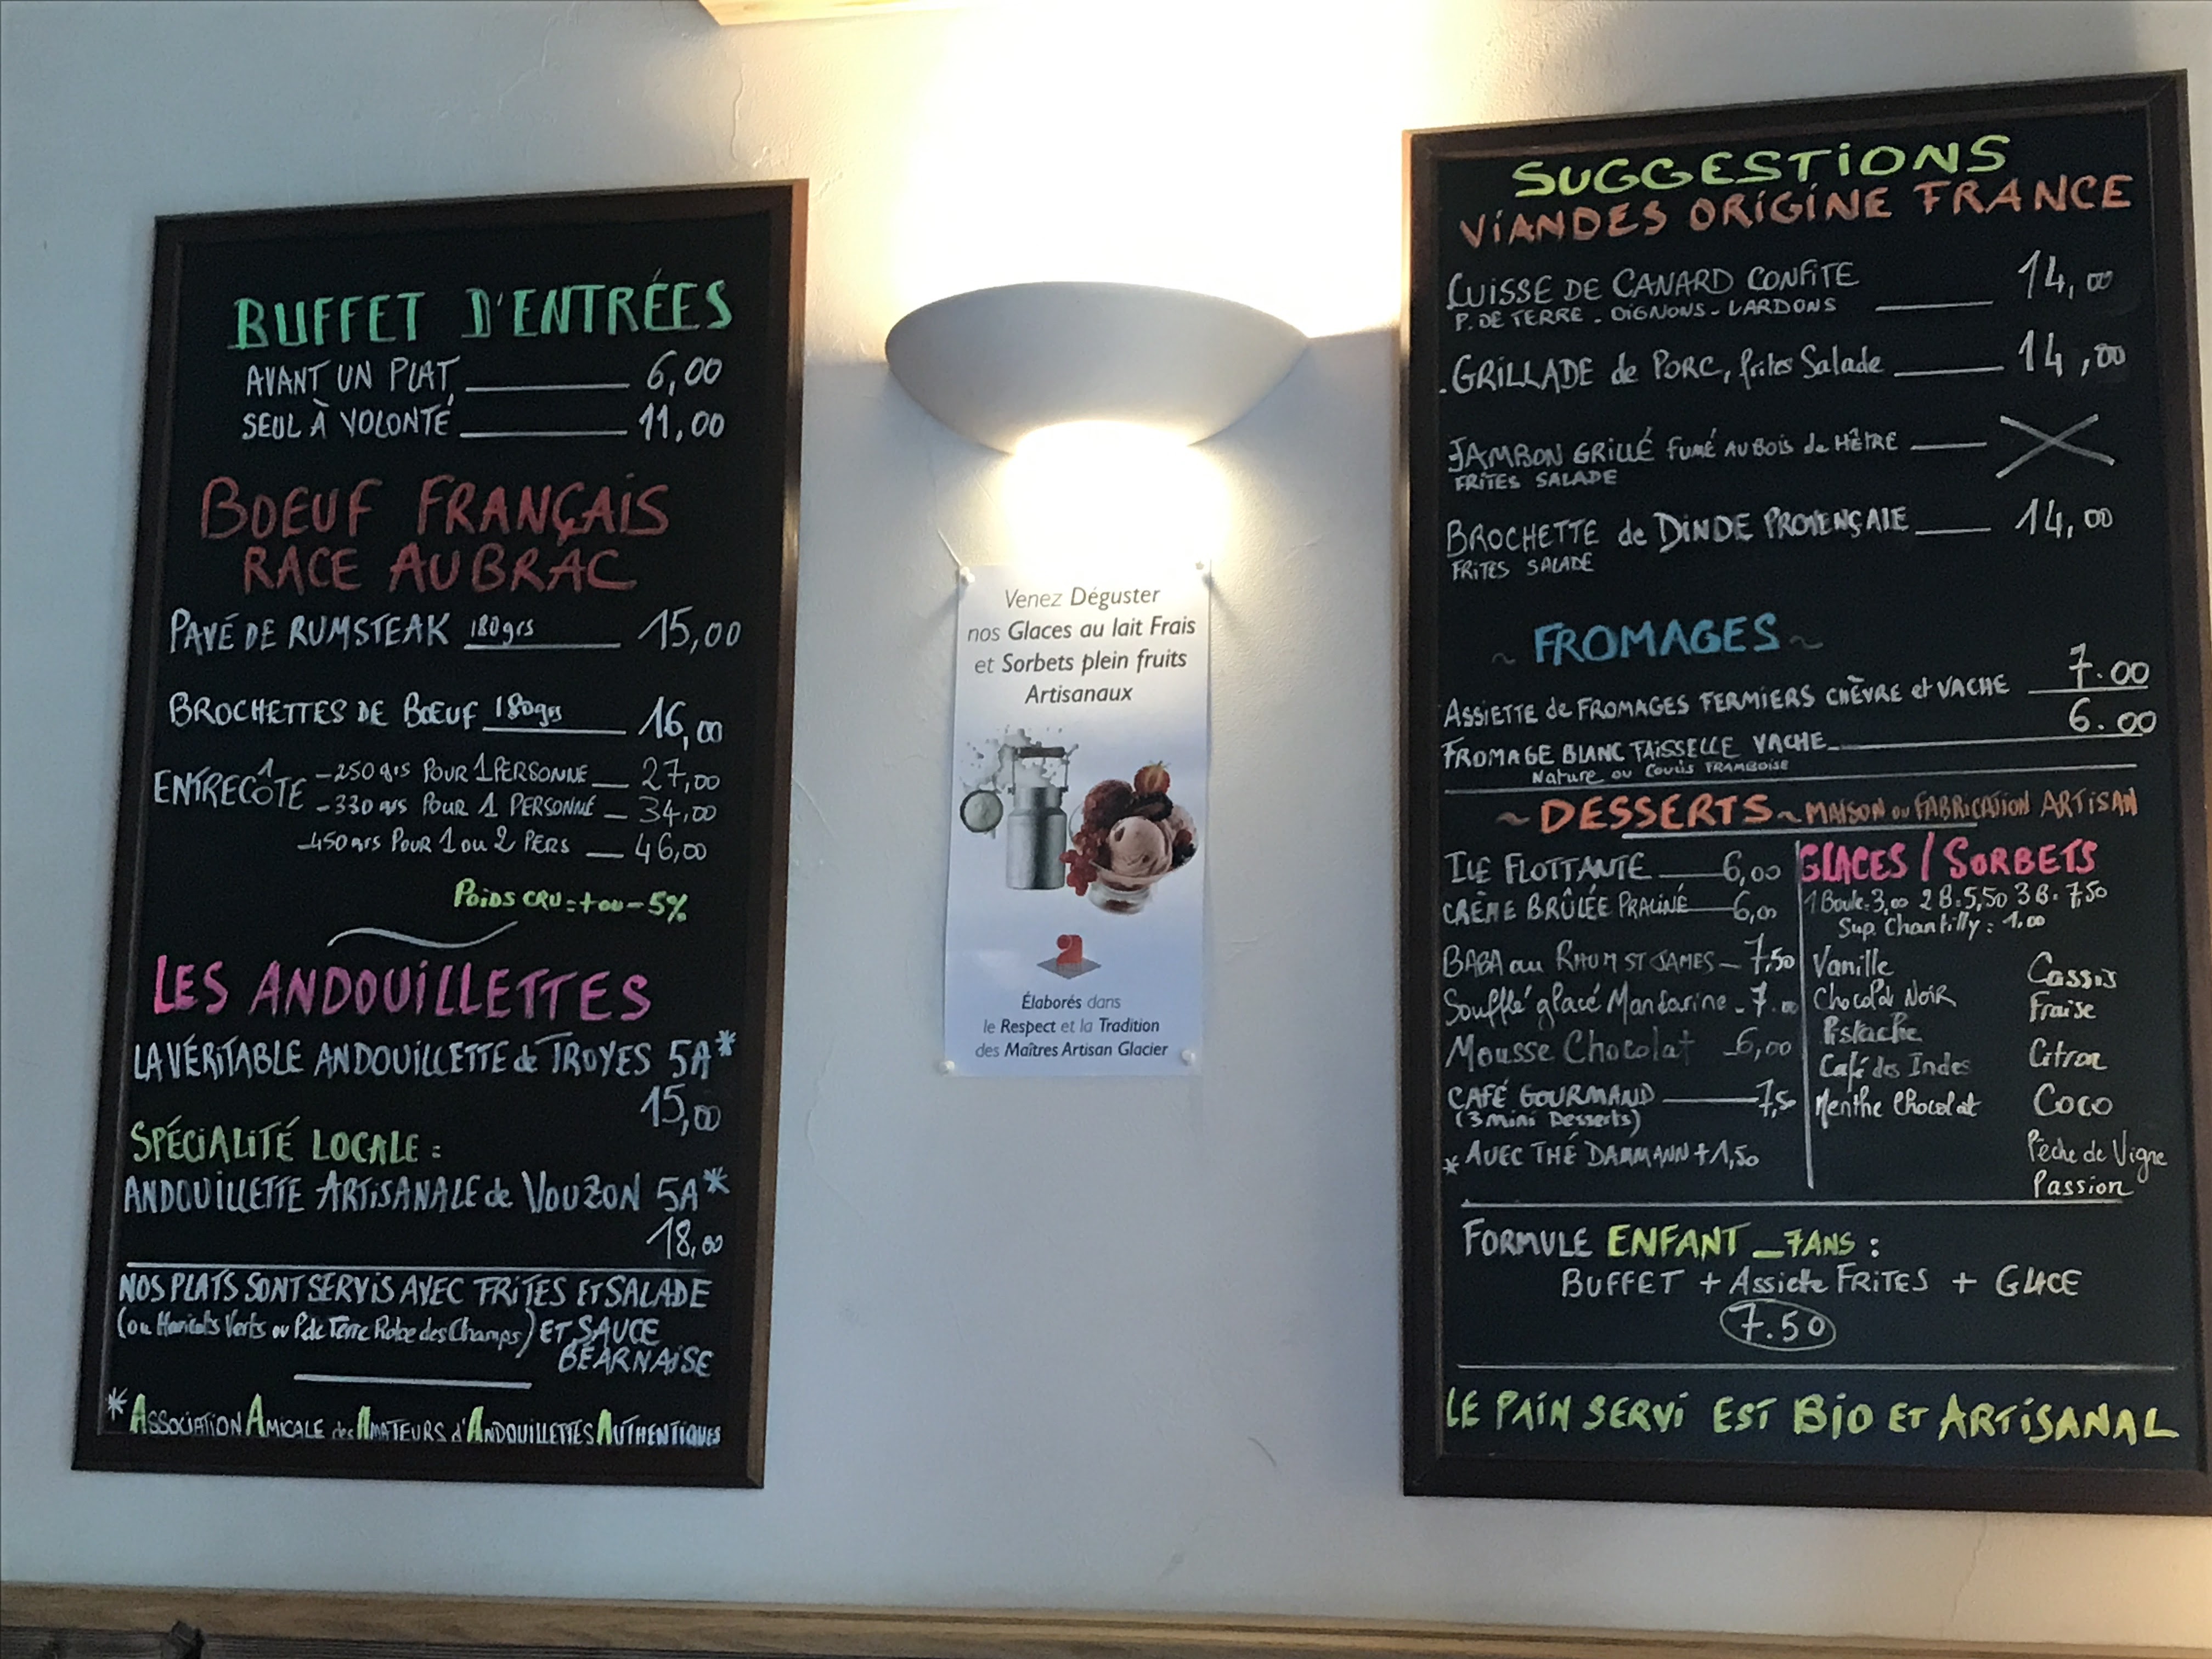 BUFFET D'ENTRÉES
AVANT UN PLAT 6,00
SEUL À VOLONTÉ 11,00
BOEUF FRANÇAIS
RACE AUBRAC
PAVÉ DE RUMSTEAK 180grs 15,00
BROCHETTES DE BOEUF 180grs 16,00
ENTRECÔTE -250grs POUR 1 PERSONNE 27,00
-330grs POUR 1 PERSONNE 34,00
-450grs POUR 1 ou 2 PERS 46,00
POIDS CRU=+ou-5%
LES ANDOUILLETTES
LA VÉRITABLE ANDOUILLETTE de TROYES 5A*
15,00
SPÉCIALITÉ LOCALE :
ANDOUILLETTE ARTISANALE de VOUZON 5A*
18,00
NOS PLATS SONT SERVIS AVEC FRITES ET SALADE
(ou Haricots Verts ou P.de Terre Robe des Champs) ET SAUCE
BÉARNAISE
*ASSOCIATION AMICALE des AMATEURS d'ANDOUILLETTES AUTHENTIQUES
Venez Déguster
nos Glaces au lait Frais
et Sorbets plein fruits
Artisanaux
Élaborés dans
le Respect et la Tradition
des Maîtres Artisan Glacier
SUGGESTIONS
VIANDES ORIGINE FRANCE
CUISSE DE CANARD CONFITE 14,00
P. DE TERRE - OIGNONS - LARDONS
.GRILLADE de PORC, frites Salade 14,00
JAMBON GRILLÉ FUMÉ AU BOIS de HÊTRE
FRITES SALADE
BROCHETTE de DINDE PROVENÇALE 14,00
FRITES SALADE
~ FROMAGES ~
ASSIETTE de FROMAGES FERMIERS CHÈVRE et VACHE 7.00
FROMAGE BLANC FAISSELLE VACHE 6.00
Nature ou Coulis FRAMBOISE
~ DESSERTS ~ MAISON ou FABRICATION ARTISAN
ILE FLOTTANTE 6,00
CRÈME BRÛLÉE PRALINÉ 6,00
BABA au RHUM ST JAMES - 7,50
Soufflé glacé Mandarine - 7.00
Mousse Chocolat - 6,00
CAFÉ GOURMAND 7,5
(3 mini Desserts)
* AVEC THÉ DAMMANN +1,50
GLACES / SORBETS
1 Boule=3,00 2 B=5,50 3 B=7,50
Sup. Chantilly : 1.00
Vanille
Chocolat NOIR
Pistache
Café des Indes
Menthe Chocolat
Cassis
Fraise
Citron
Coco
Pêche de Vigne
Passion
FORMULE ENFANT _7ANS :
BUFFET + Assiette FRITES + GLACE
7.50
LE PAIN SERVI EST BIO ET ARTISANAL